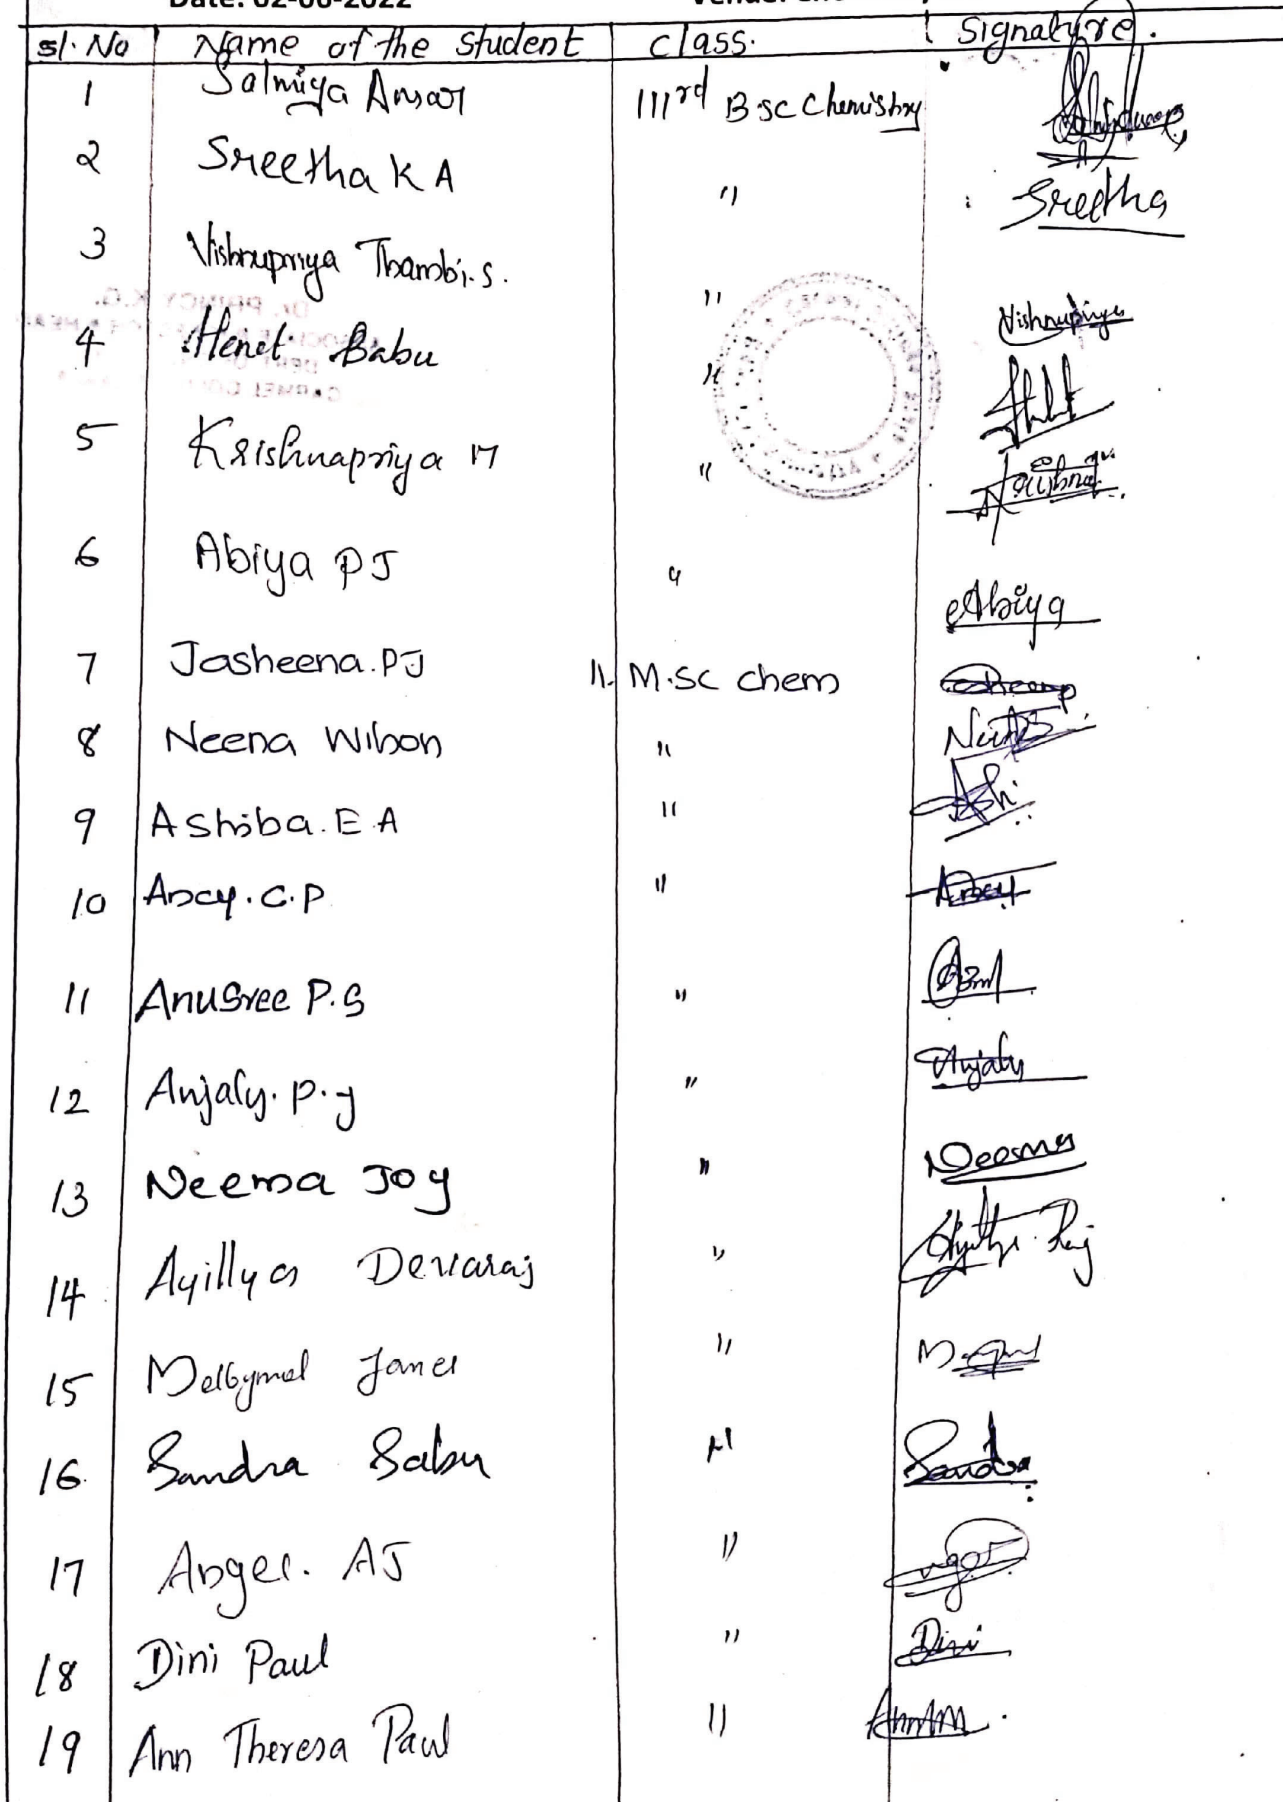 Date: 02-06-2022
Sl. No Name of the Student Class. Signature.
1 Salmiya Ansar IIIrd BSc Chemistry
2 Sreetha K A " Sreetha
3 Vishnupriya Thambi.S. " Vishnupriya
4 Henet Babu "
5 Krishnapriya M "
6 Abiya PJ " Abiya
7 Jasheena.PJ II. M.SC chem
8 Neena Wilson "
9 Ashiba.E.A " Ashi
10 Ancy.C.P " Ancy
11 Anusree P.S "
12 Anjaly.P.J " Anjaly
13 Neema Joy " Neema
14 Ayillya Devaraj "
15 Melbymol James "
16 Sandra Sabu " Sandra
17 Angel. AJ "
18 Dini Paul " Dini
19 Ann Theresa Paul "